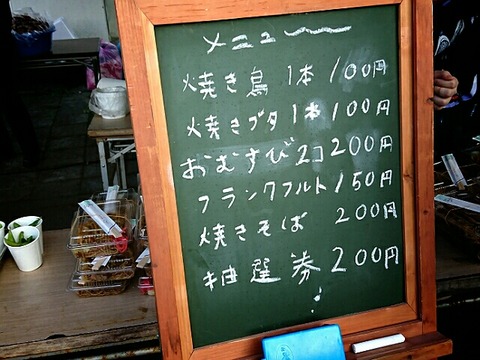 メニュー
焼き鳥 1本 100円
焼きブタ 1本 100円
おむすび 2コ 200円
フランクフルト 150円
焼きそば 200円
抽選券 200円